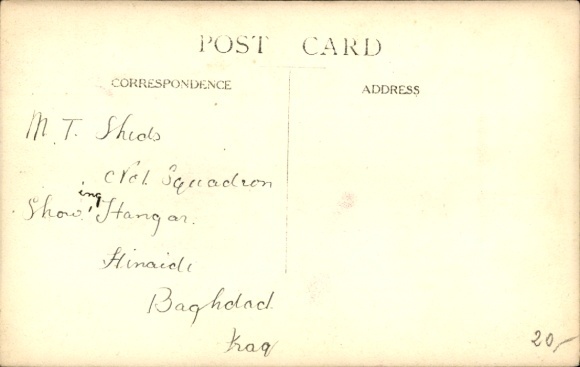 POST CARD
CORRESPONDENCE
ADDRESS
M.T. Sheds
No 1 Squadron
Showing Hangar.
Hinaidi
Baghdad
Iraq
20,-